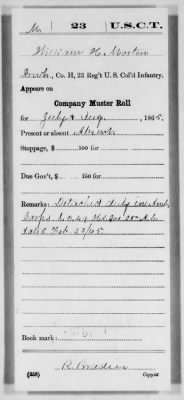 M | 23 | U.S.C.T.
William H. Morton
Co. H, 23 Reg't U. S. Col'd Infantry.
Appears on
Company Muster Roll
for July & Aug, 1865.
Present or absent Absent
Stoppage, $ 100 for
Due Gov't, $ 100 for
Remarks: Detailed duty in Amb.
Corps 25" A.C.
Feb. 22/65
Book mark:
(358) Copyist.